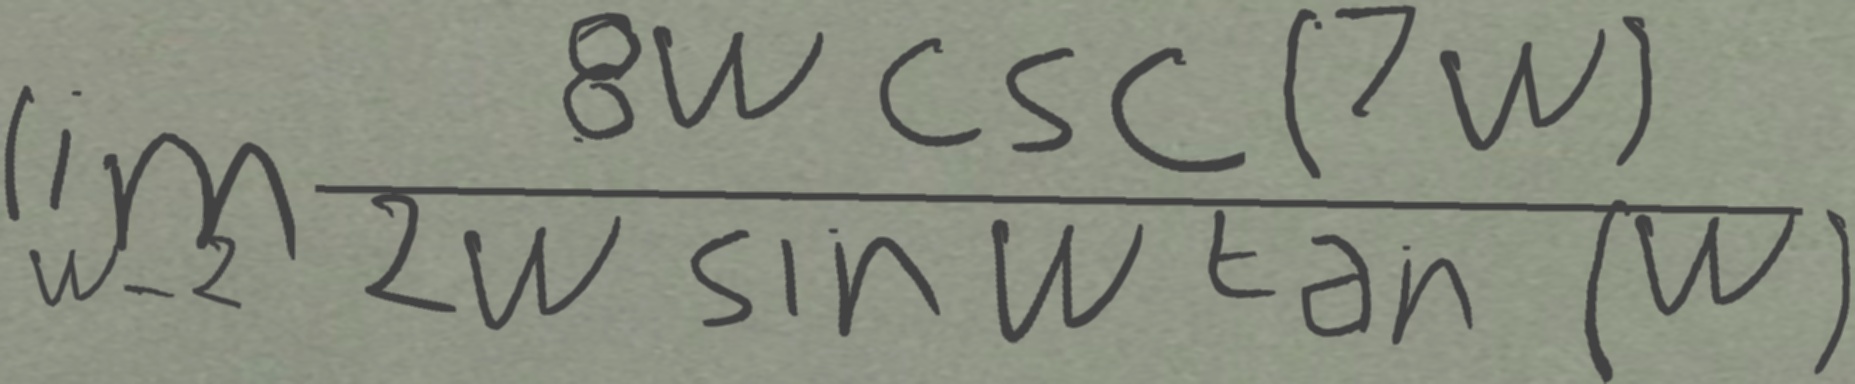 lim 8w csc(7w)
w-2 2w sin w tan (w)